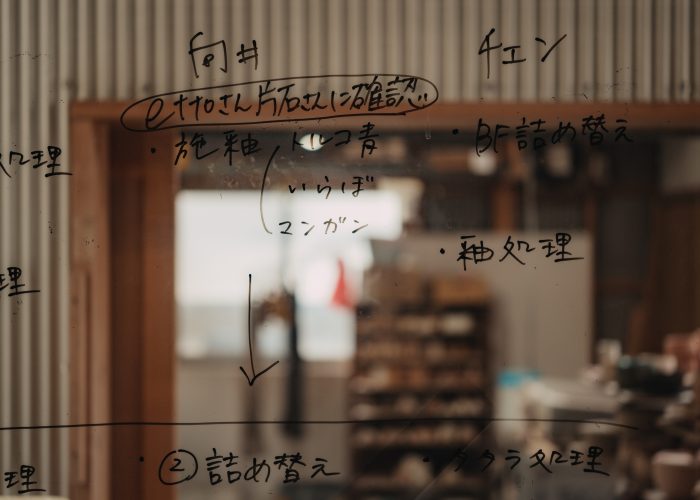 向井
チェン
さん片石さんに確認
・施釉 トルコ青
いらぼ
マンガン
・BF詰め替え
処理
・釉処理
理
・② 詰め替え
・タタラ処理
理